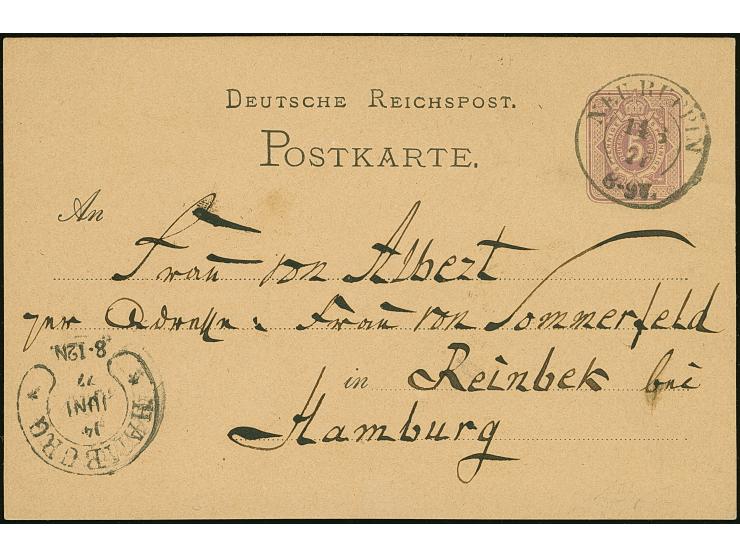 DEUTSCHE REICHSPOST.
POSTKARTE.
NEU RUPPIN
14 6
77
8-9V.
5
An
Frau von Albert
per Adresse: Frau von Sommerfeld
in Reinbek bei
Hamburg
HAMBURG
14
JUNI
77
8-12N.